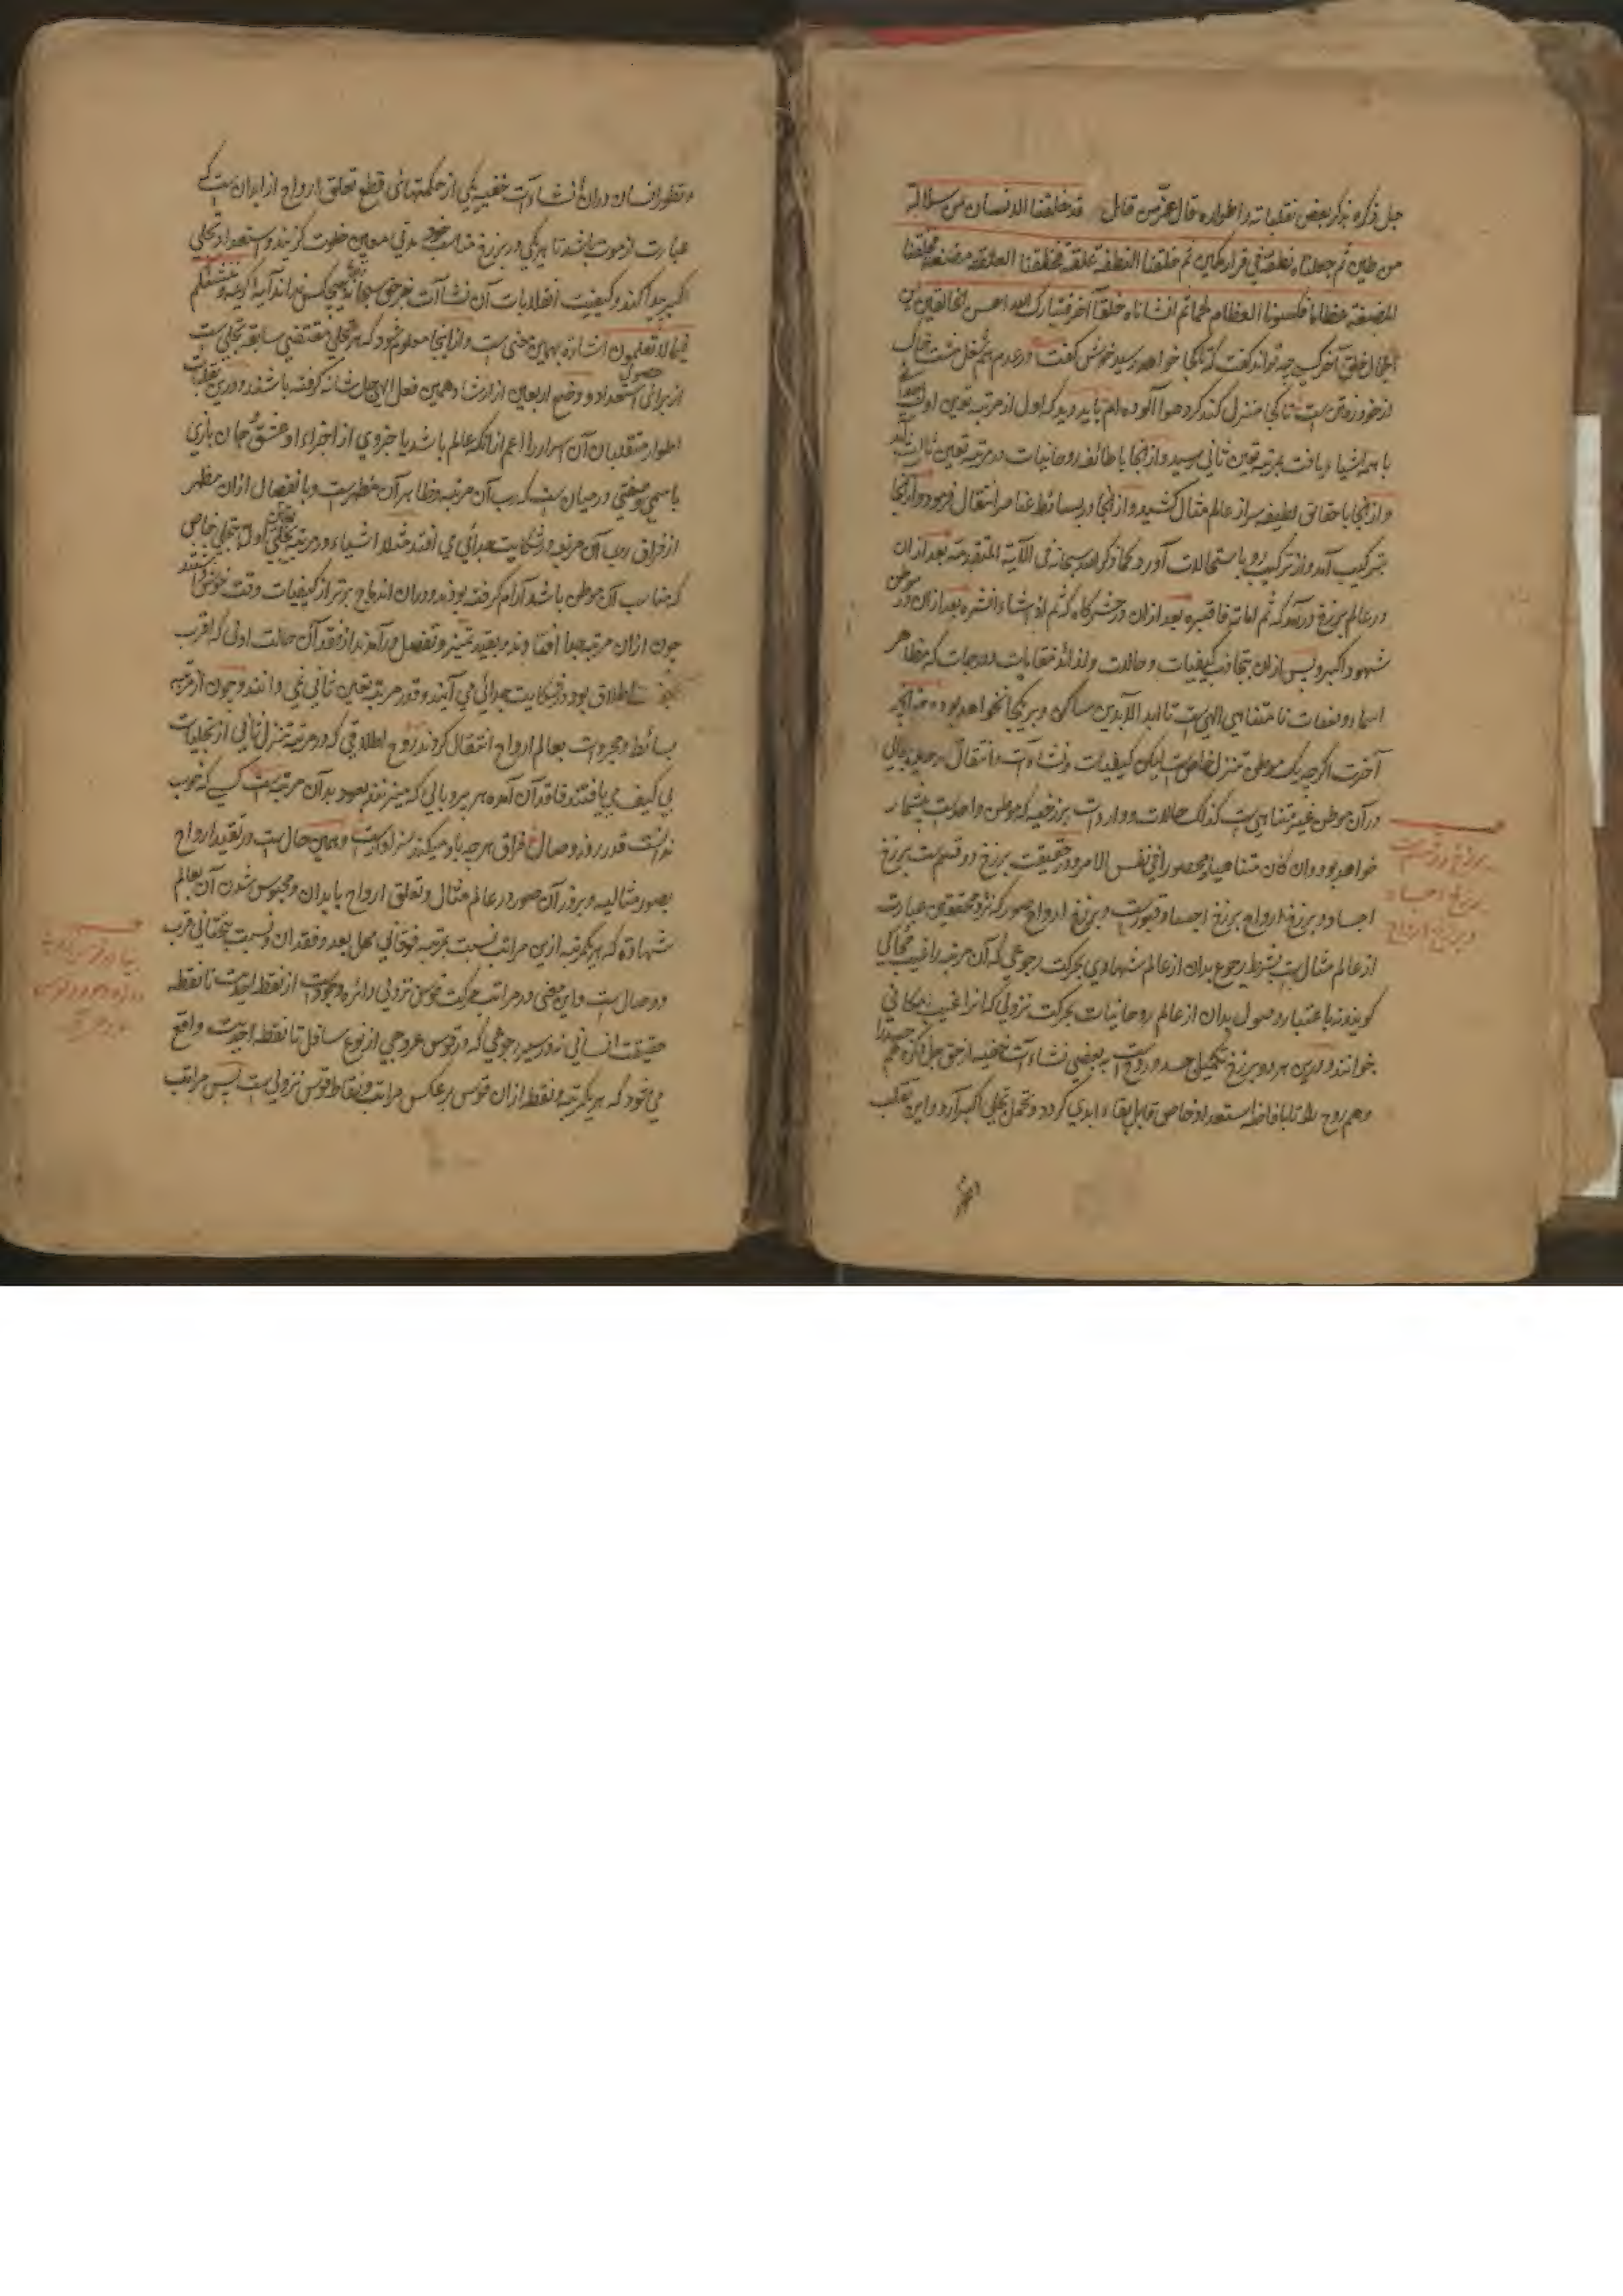 جل ذکره بذکر بعض تقلباته و اطواره قال عز من قائل قد خلقنا الانسان من سلالة
من طین ثم جعلناه نطفة فی قرار مکین ثم خلقنا النطفة علقة فخلقنا العلقة مضغة فخلقنا
المضغة عظاما فکسونا العظام لحما ثم انشاناه خلقا آخر فتبارک الله احسن الخالقین
خلق آخر چه تواند گفت که تا کجا خواهد رسید کفت در عدم مشت خاک
از خود رفتن است تا کی منزل کند کرد هوا آلوده ام باید دید که اول از مرتبه تعین اول
با همه اشیاء یافت بمرتبه تعین ثانی رسید و از انجا با طائفه روحانیات در مرتبه تعین ثالث آمد
و از انجا با حقائق لطیفه سر از عالم مثال کشید و از انجا در بسائط عناصر انتقال فرمود و از انجا
بترکیب آمد و از ترکیب رو باستحالات آورد کما ذکر الله سبحانه فی الآیة المتقدمة بعد ازان
در عالم برزخ درآمد که ثم اماته فاقبره بعد ازان در حشرگاه که ثم اذا شاء انشره بعد ازان در موطن
شهود اکبر و پس ازان کیفیات و حالات و لذائذ مقامات و درجات که مظاهر
اسماء و صفات نامتناهی الهی است تا ابد الآبدین ساکن و بریکجا نخواهد بود چنانچه
آخرت اگرچه یک موطن تنزل خاص است لیکن کیفیات و نشاءات و انتقال
در آن موطن غیر متناهی است کذلک حالات و واردات برزخیه که موطن واحد است بیشمار
خواهد بود و ان کان متناهیا و محصورا فی نفس الامر و در حقیقت برزخ دو قسم است برزخ
اجساد و برزخ ارواح برزخ اجساد قبور است و برزخ ارواح صور که نزد محققین عبارت
از عالم مثال است بشرط رجوع بدان از عالم شهادی بحرکت رجوعی که آن مرتبه را غیب محالی
گویند و باعتبار وصول بدان از عالم روحانیات بحرکت نزولی که آنرا غیب امکانی
خوانند و درین هر دو برزخ تکمیل جسد و روح است به بعضی نشاءات خفیه از حق جل ذکره هم جسد را
و هم روح را تا بافاضه استعداد خاص قابل بقاء ابدی گردد و تحمل تجلی اکبر آرد و این تقلب
برزخ دو قسم است
برزخ اجساد
و برزخ ارواح
و تطور انسان دران نشاءات خفیه یکی از حکمتهای قطع تعلق ارواح از ابدان است که
عبارت از موت باشد تا هر یکی در برزخ مناسب خود مدتی معین خلوت گزیند و استعداد تجلی
اکبر پیدا کند و کیفیت انقلابات آن نشاءات جز حق سبحانه هیچکس نداند آیه کریمه و ننشئکم
فیما لا تعلمون اشاره بهمین معنی است و از اینجا معلوم شود که هر تجلی مقتضی سابقه تجلی است
از برای حصول استعداد و وضع اربعین از ارشاد همین فعل الهی جل شانه گرفته باشند و درین تقلبات
اطوار متقلبان آن اسرار را اعم از آنکه عالم باشد یا جزوی از اجزاء او عشق جان بازی
با اسمی و صفتی درمیان است که رب آن مرتبه و ظاهر آن مظهر است و بانفصال ازان مظهر
از فراق رب آن مرتبه در شکایت جدائی می افتد مثلا اشیاء در مرتبه تعین اول بتجلی خاص
که مناسب آن موطن باشد آرام گرفته بودند و دران اندماج برتر از کیفیات وقت خوش داشتند
چون ازان مرتبه جدا افتادند و بقید تمیز و تفصل درآمدند از فقدان حالت اولی که اقرب
اطلاق بود در شکایت جدائی می آیند و قدر مرتبه تعین ثانی نمی دانند و چون از مرتبه
بسائط و مجردات بعالم ارواح انتقال کردند روح اطلاقی که در مرتبه تنزل ثانی از تجلیات
بی کیف می یافتند فاقد آن آمده هر پر و بالی که میزنند بعود بدان مرتبه است کسی که خوب
ندانست قدر روز وصال فراق هر چه باو میکند سزاوار است و همین حال است در تقید ارواح
بصور مثالیه و بروز آن صور در عالم مثال و تعلق ارواح بابدان و محبوس شدن آن بعالم
شهادة که هر یکمرتبه ازین مراتب نسبت بمرتبه فوقانی محل بعد و فقدان و نسبت بتحتانی قرب
و وصال است و این معنی در مراتب حرکت قوس نزولی دائره وجود است از نقطه احدیت تا نقطه
حقیقت انسانی و در سیر رجوعی که در قوس عروجی از نوع سافل تا نقطه احدیت واقع
می شود که هر یکمرتبه و نقطه ازان قوس بر عکس مراتب و نقاط قوس نزولی است پس مراتب